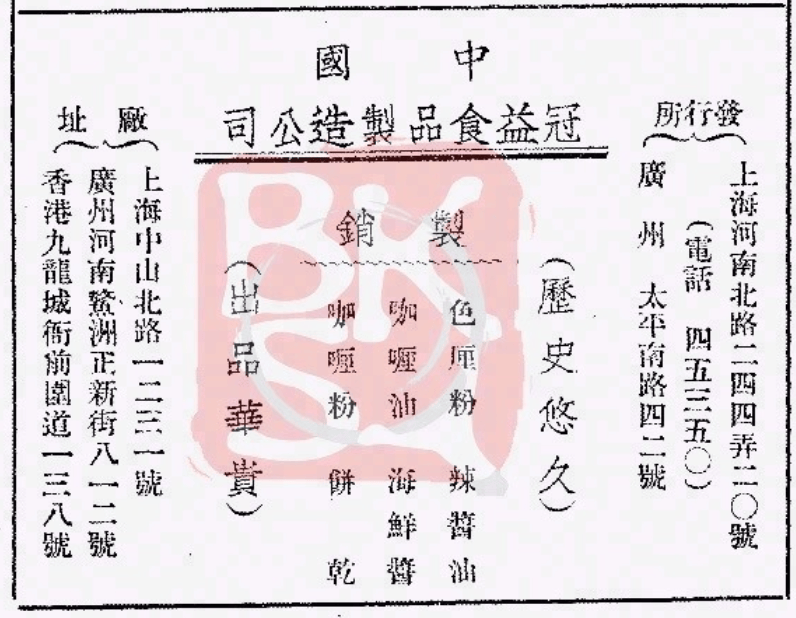 中國
冠益食品製造公司
發行所
上海河南北路二四四弄二〇號
(電話 四五三五〇)
廣州 太平南路四二號
(歷史悠久)
製銷
色厘粉 辣醬油
咖喱油 海鮮醬
咖喱粉 餅乾
(出品華貴)
廠址
上海中山北路一二三一號
廣州河南鰲洲正新街八一二號
香港九龍城衙前圍道一三八號